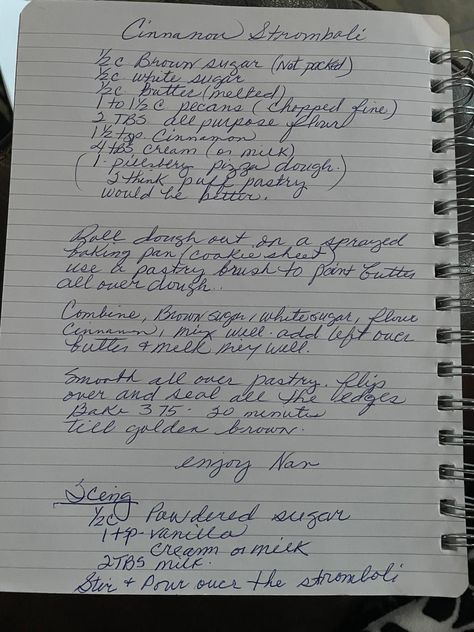 Cinnanon Stromboli
1/2c Brown sugar (Not packed)
1/2c white sugar
1/2c butter (melted)
1 to 1 1/2c pecans (chopped fine)
2 TBS all purpose flour
1 1/2 tsp. Cinnamon
4 tBS cream (or milk)
(1- pillsberry pizza dough.
I think puff pastry
would be better.)
Roll dough out on a sprayed
baking pan/(cookie sheet)
use a pastry brush to paint butter
all over dough..
Combine, Brown sugar, white sugar, flour
cinnamon, mix well. add left over
butter & milk mix well.
Smooth all over pastry. flip
over and seal all the edges
Bake 375 - 20 minutes
till golden brown.
enjoy Nan
Icing
1/2c Powdered sugar
1 tsp vanilla
cream or milk
2TBS milk.
Stir & Pour over the stromboli